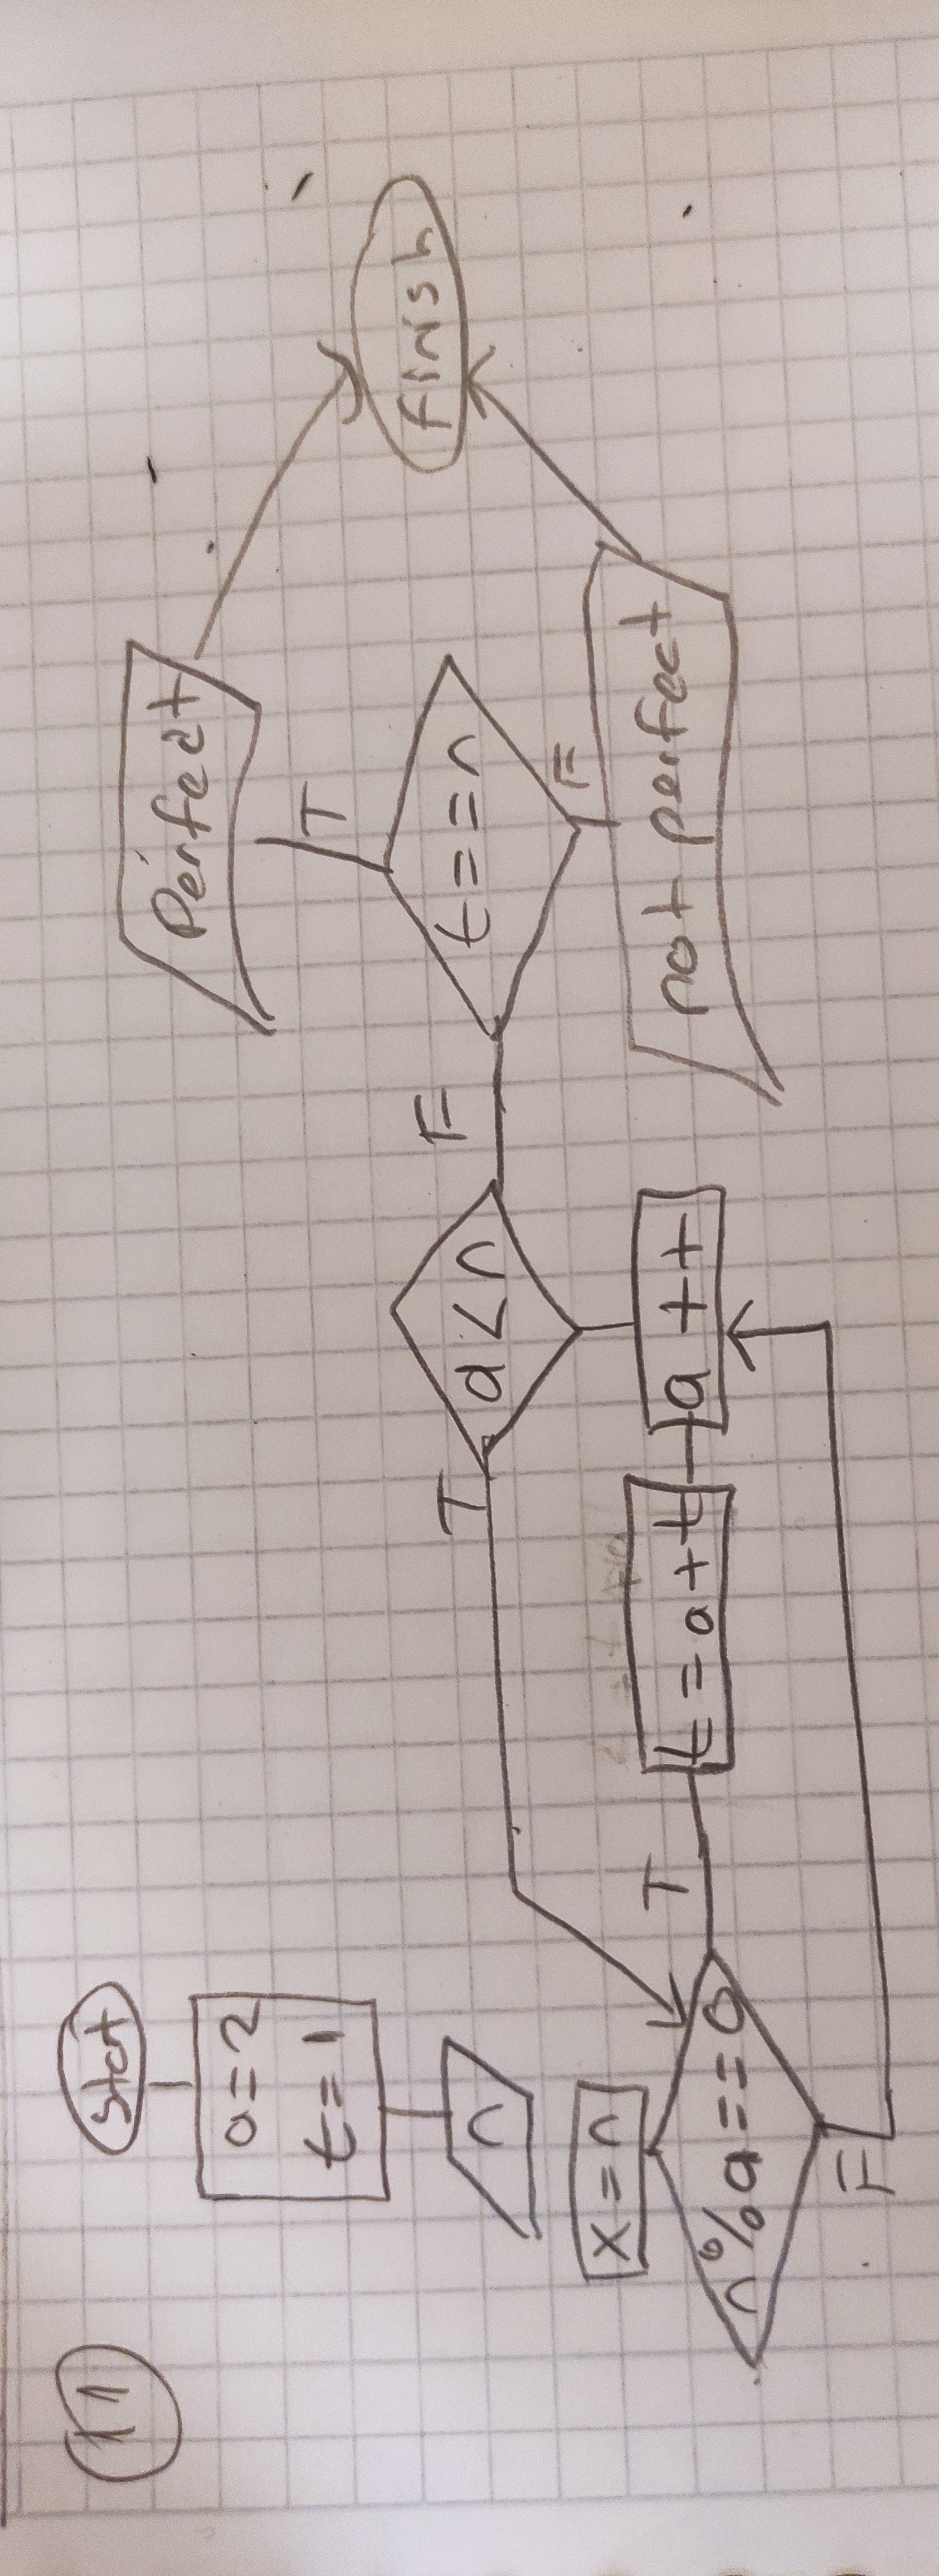 11
Start
a=2
t=1
n
x=n
n%a==0
T
F
t=a+t
a++
a<n
T
F
t==n
T
F
Perfect
not perfect
finish